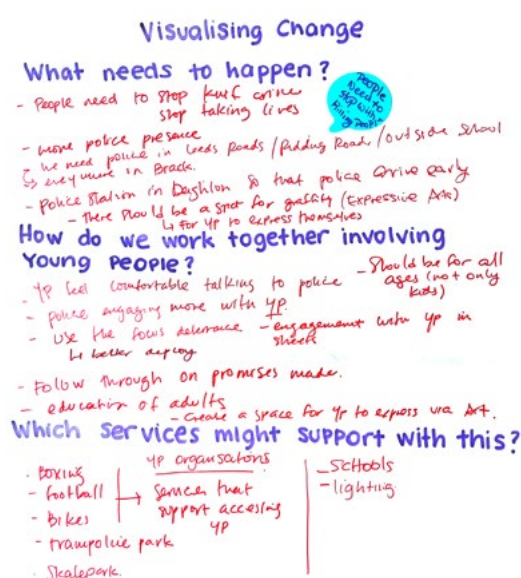 Visualising Change
What needs to happen?
- People need to stop knife crime
stop taking lives
People
Need to
stop with
People
- more police presence
we need police in Leeds Roads / Road / outside school
everywhere in
- Police station in so that police arrive early
- There should be a spot for graffiti (Expressive Arts)
↳ For YP to express themselves
How do we work together involving
Young People?
- YP feel comfortable talking to police
- Should be for all
ages (not only
kids)
- police engaging more with YP.
- Use the focus deterrence
- engagement with YP in
streets
↳ better deploy
- Follow through on promises made.
- education of adults
- Create a space for YP to express via Art.
Which services might support with this?
- Boxing
- football
- Bikes
- trampoline park
- Skatepark.
YP organisations
→ services that
support accessing
YP
- Schools
- lighting